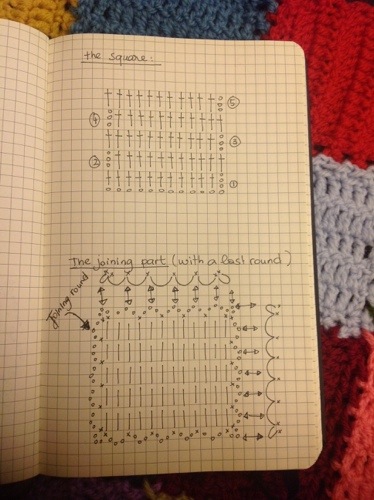 the square:
5
4
3
2
1
The joining part (with a last round)
Joining round